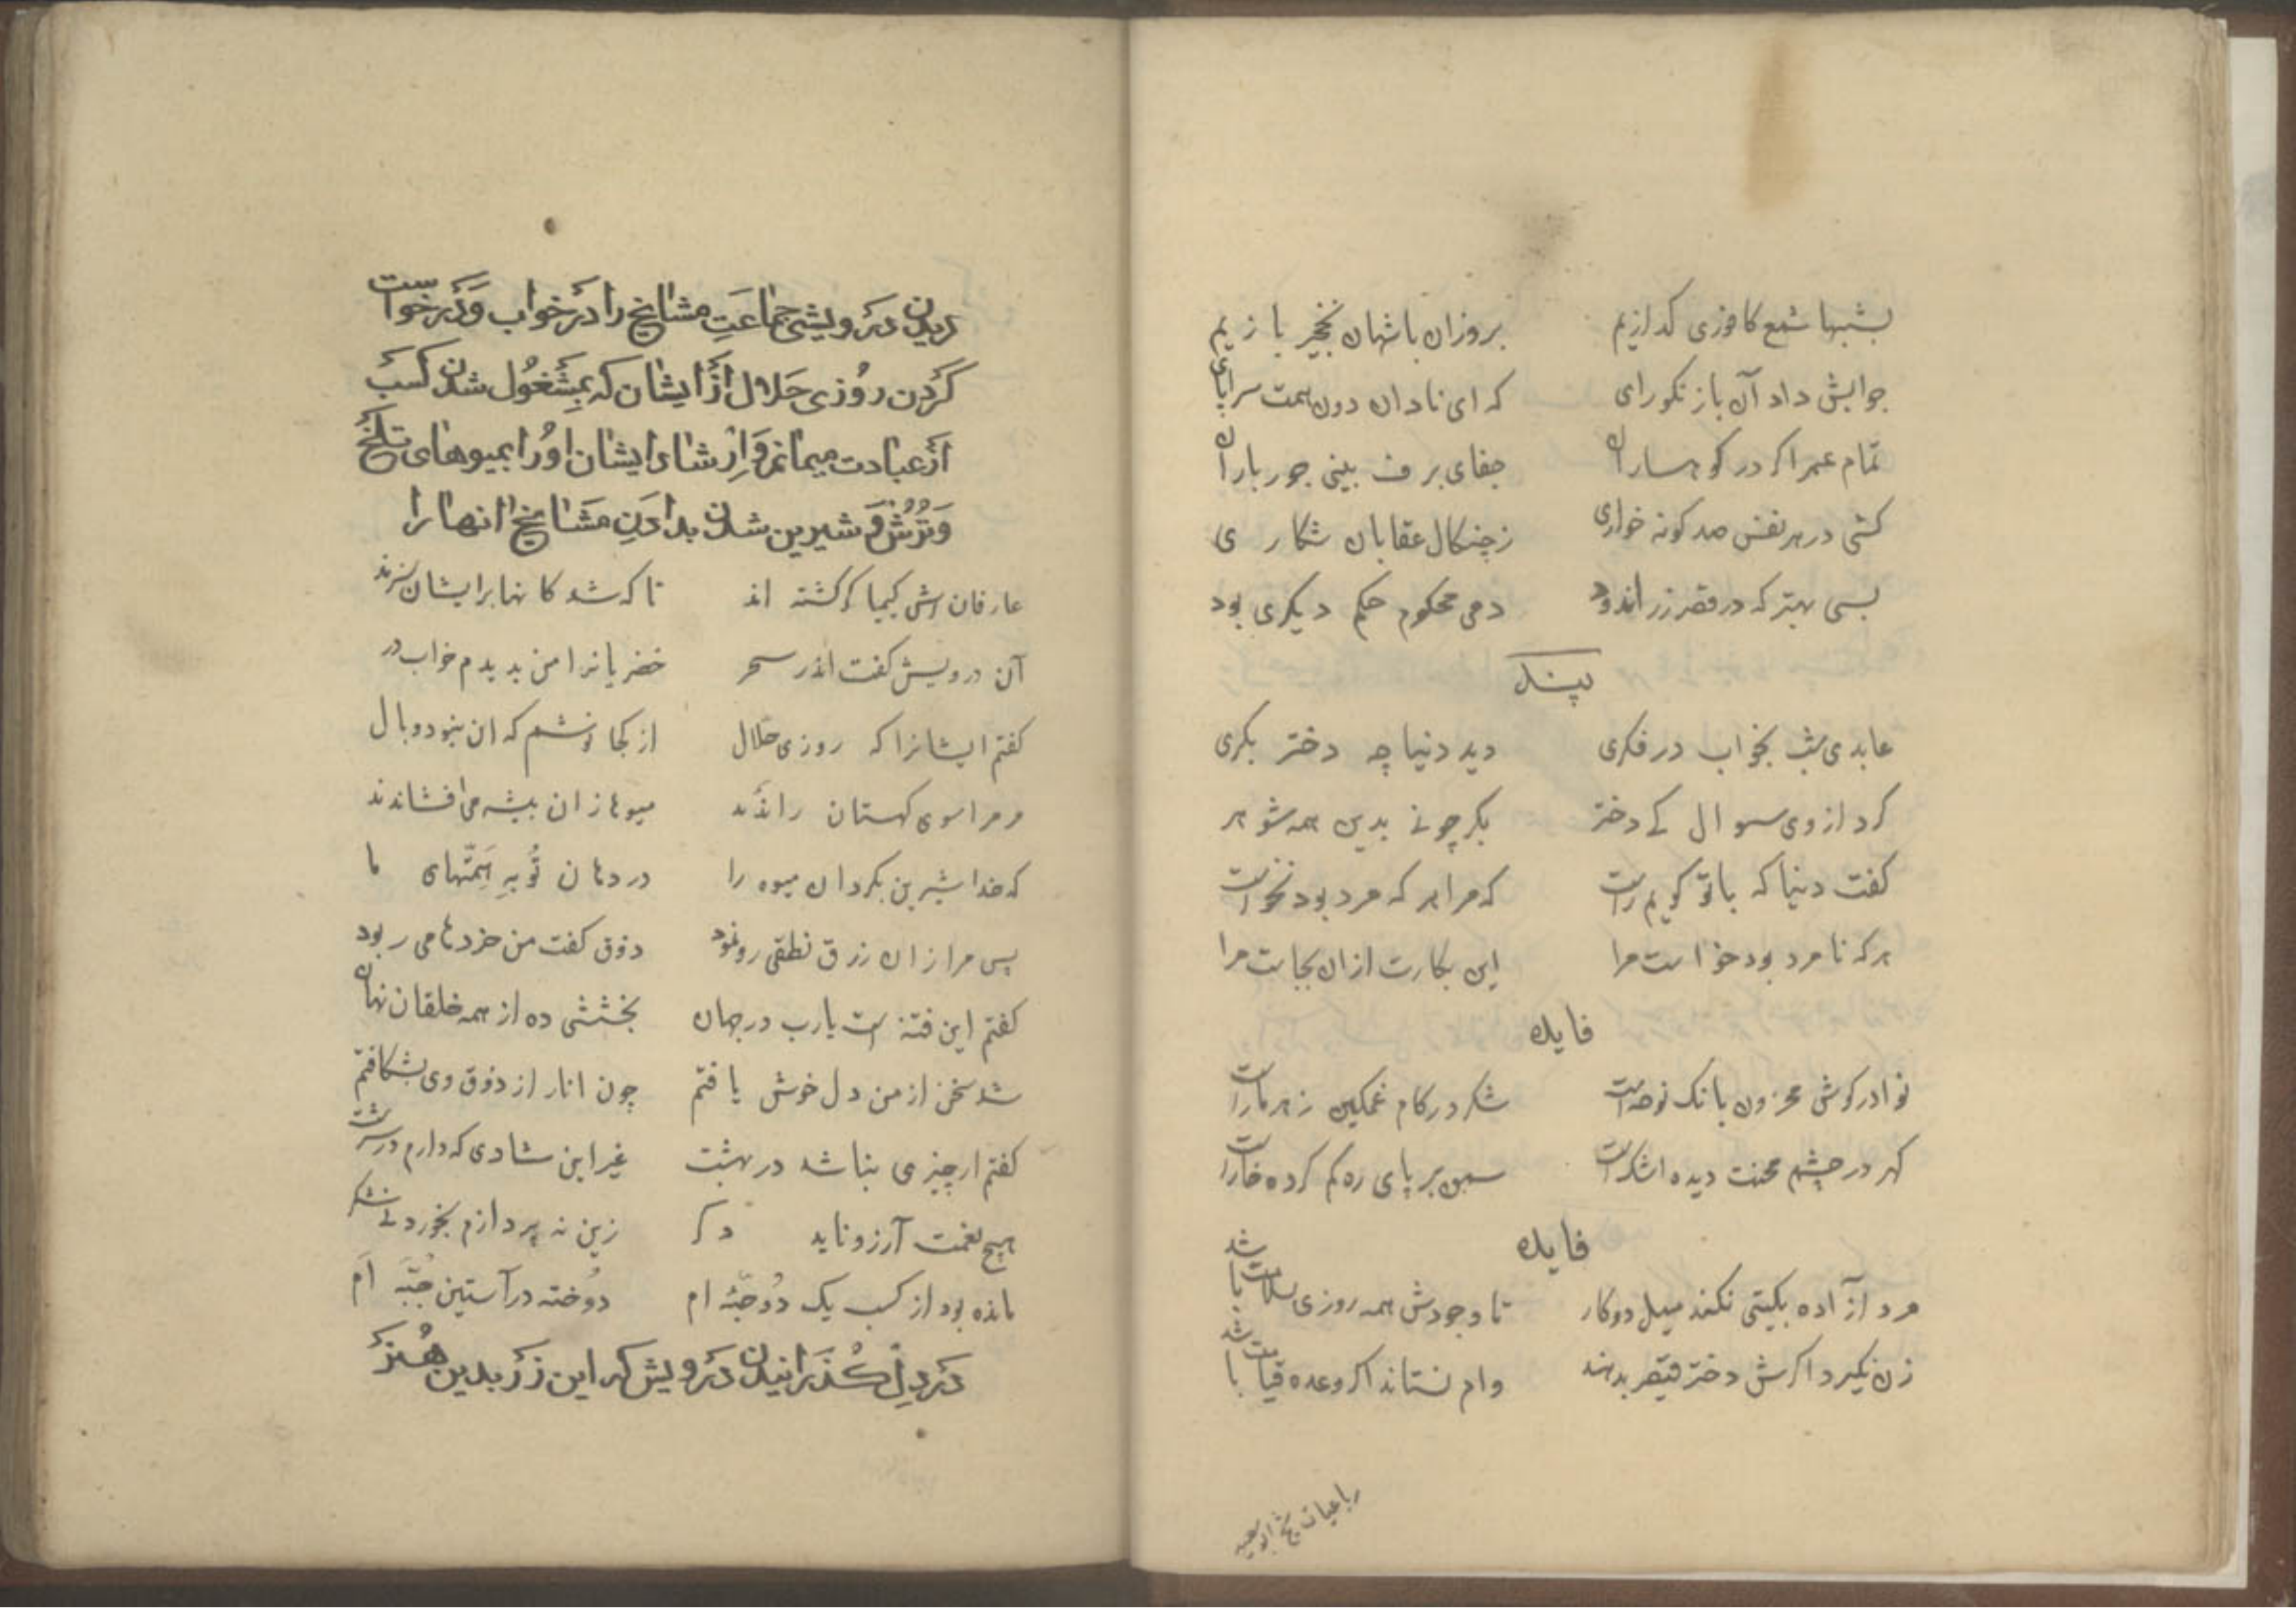 بشبها شمع کافوزی کدازیم بروزان باشهان نخجیر بازیم
جوابش داد آن باز نکورای که ای نادان دون همت سراپای
تمام عمر اکر در کوهساران جفای برف بینی جور باران
کشی در هر نفس صد کونه خواری زچنکال عقابان شکاری
بسی بهتر که در قصر زر اندود دمی محکوم حکم دیکری بود
پند
عابدی شب بخواب در فکری دید دنیا چه دختر بکری
کرد از وی سوال کے دختر بکر چونے بدین همه شوهر
کفت دنیا که با تو کویم راست که مرا هر که مرد بود نخواست
هرکه نامرد بود خواست مرا این بکارت ازان بجاست مرا
فایده
نوا در کوش محزون بانک نوحه است شکر در کام غمکین زهر مارست
کهر در چشم محنت دیده اشک است سمن بر پای ره کم کرده خارست
فایده
مرد آزاده بکیتی نکند میل دو کار تا وجودش همه روزی بسلامت باشد
زن نکیرد اکرش دختر قیصر بدهند وام نستاند اکر وعده قیامت باشد
رباعیات شیخ ابوسعید
دیدن درویشی جماعت مشایخ را در خواب و درخواست
کردن روزی حلال از ایشان که بمشغول شدن کسب
از عبادت میمانم و ارشاد ایشان او را بمیوهای تلخ
و ترش و شیرین شدن بدادن مشایخ انها را
عارفان کیمیا کر کشته اند تا که شد کانها بر ایشان نژند
آن درویش کفت اندر سحر خضریانرا من بدیدم خواب در
کفتم ایشانرا که روزی حلال از کجا نوشم که ان نبود وبال
مر مرا سوی کهستان راندند میوها زان بیشه می افشاندند
که خدا شیرین بکرد ان میوه را در دهان تو به همتهای ما
پس مرا زان رزق نطقی رو نمود ذوق کفت من خردها می ربود
کفتم این فتنه است یارب در جهان بخششی ده از همه خلقان نهان
شد سخن از من دل خوش یافتم چون انار از ذوق وی بشکافتم
کفتم ار چیزی بناشد در بهشت غیر این شادی که دارم در سرشت
هیچ نعمت آرزو ناید دکر زین نه پردازم بخورد نیشکر
مانده بود از کسب یک دو حبه ام دوخته در آستین جبه ام
در دل کذرانیدن درویش که این زر بدین هیزم